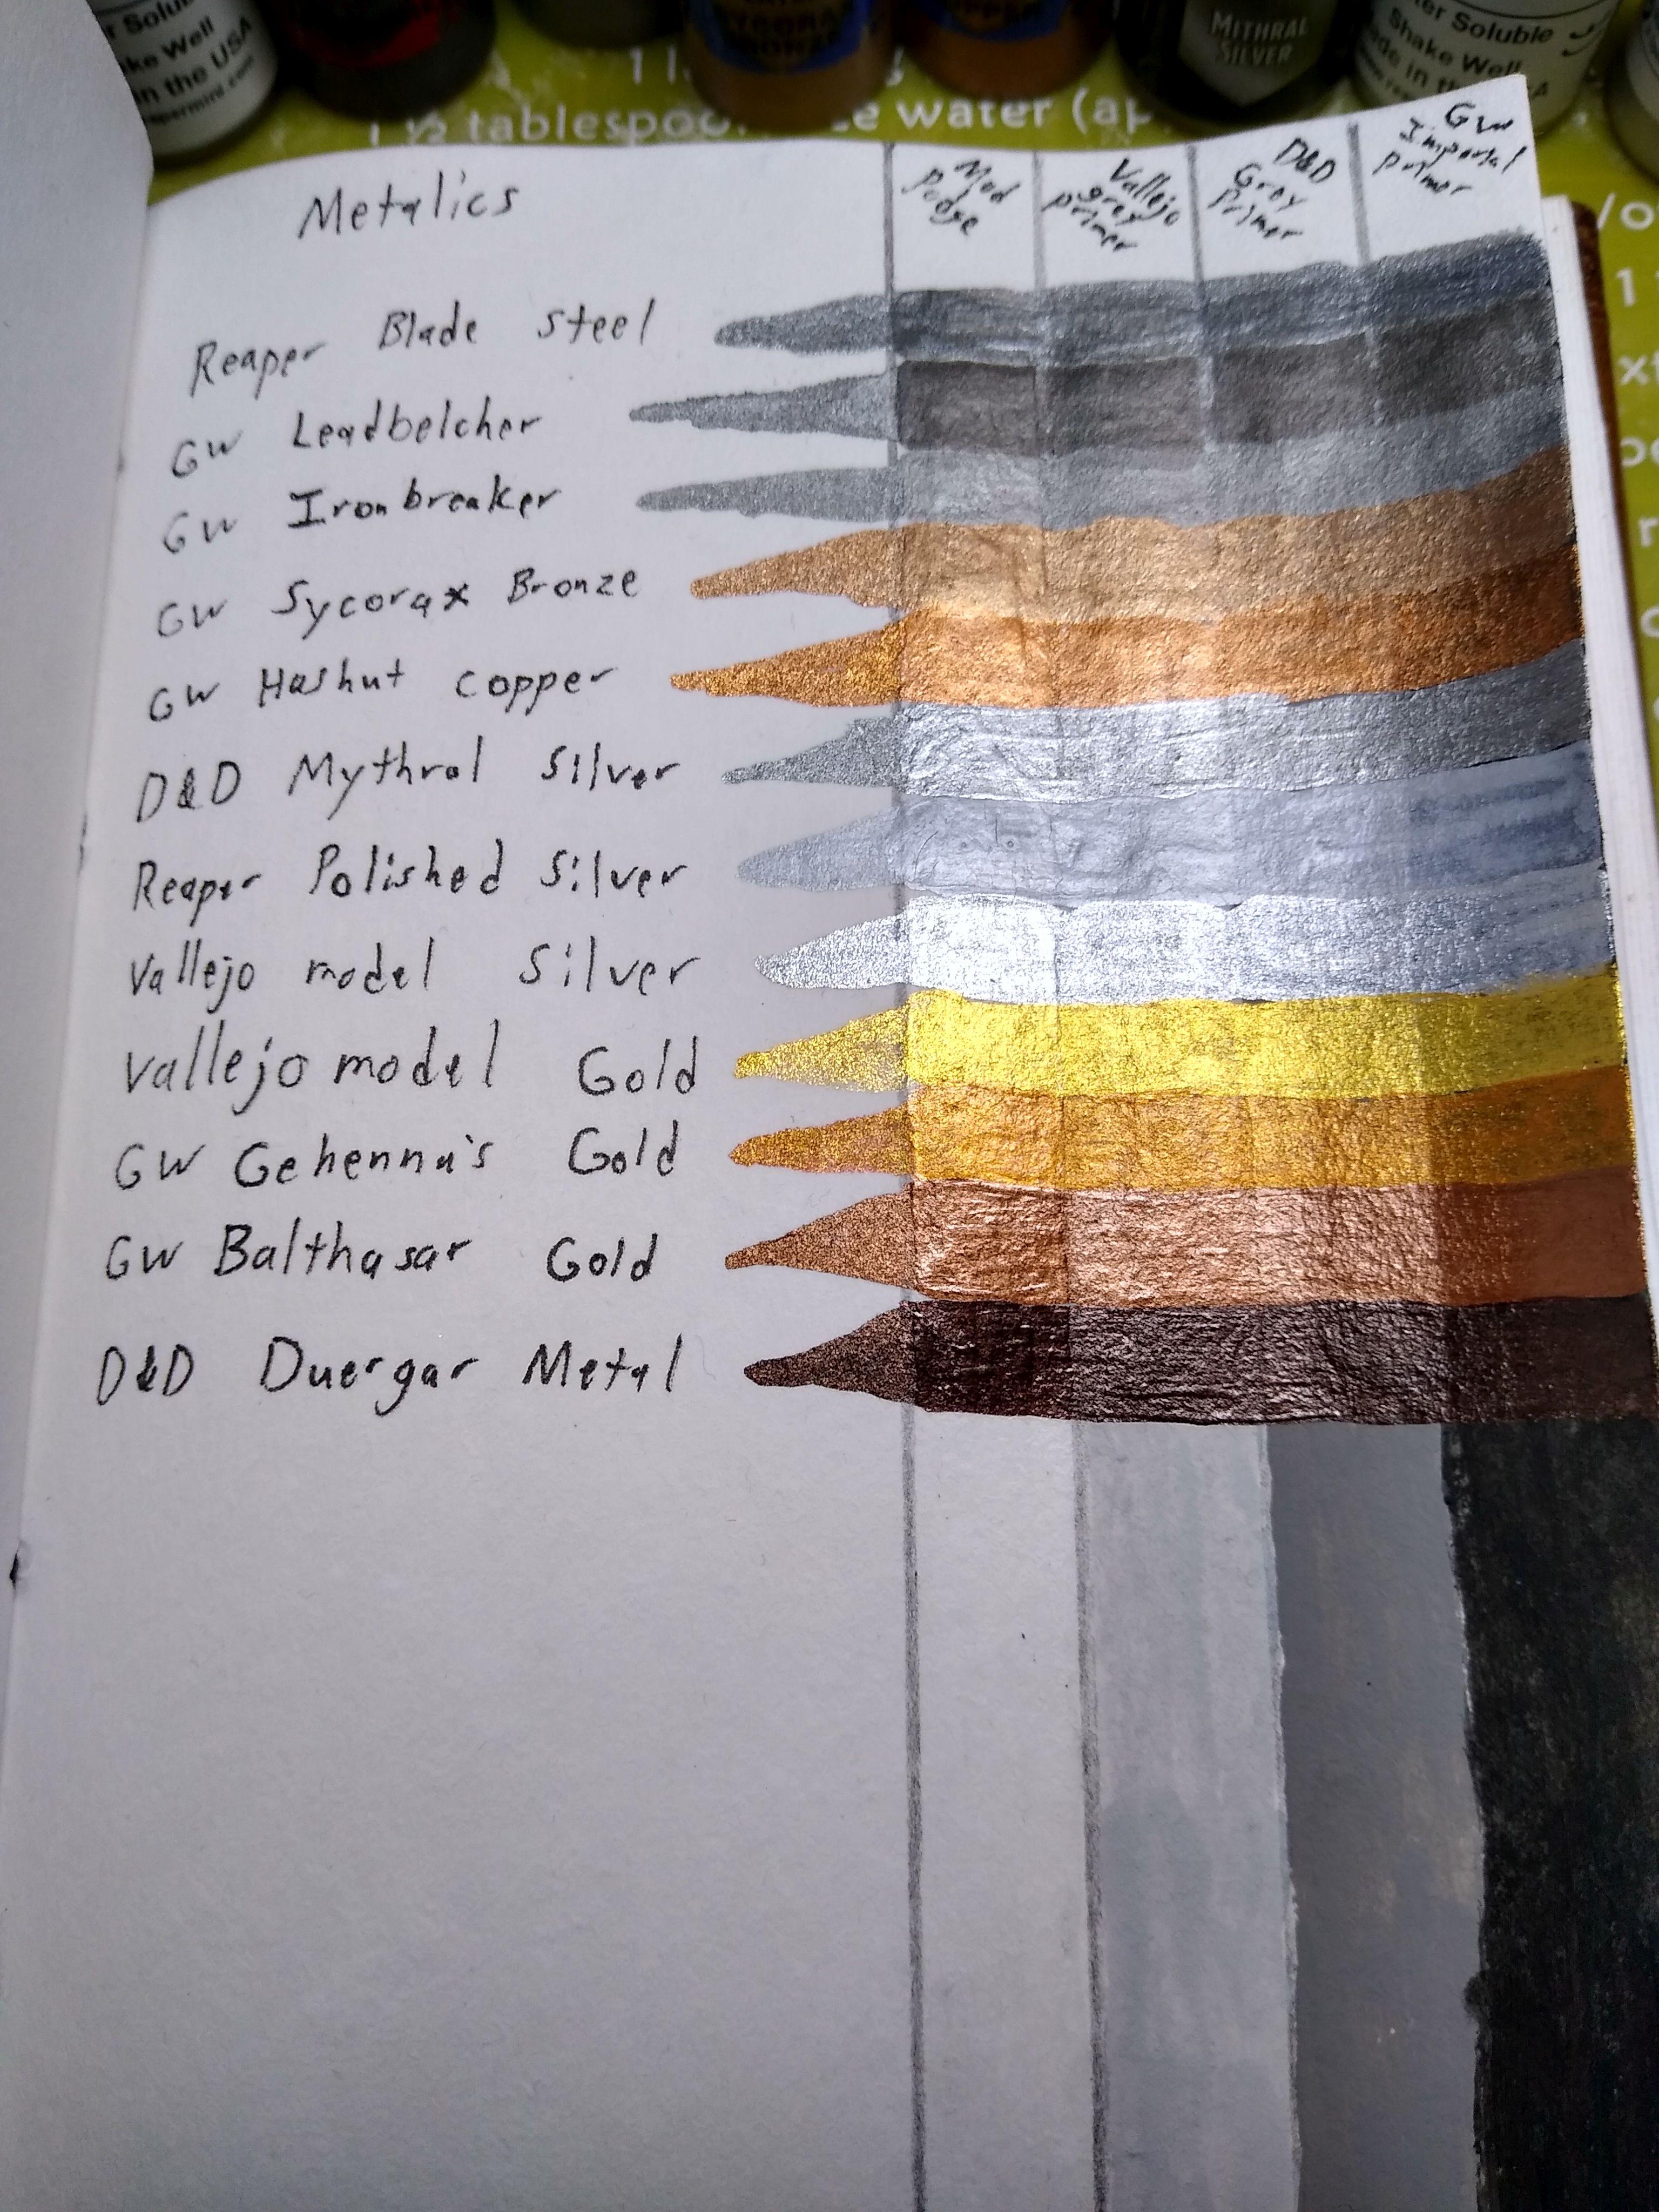 r Soluble
Shake Well
in the USA
apermini.com
MITHRAL
SILVER
er Soluble
Shake Well
ade in the USA
1 ½ tablespoo
ce water (ap
Metalics
Mod
Podge
Vallejo
grey
primer
D&D
Grey
Primer
GW
Imperial
primer
Reaper Blade Steel
GW Leadbelcher
GW Ironbreaker
GW Sycorax Bronze
GW Hashut copper
D&D Mythral Silver
Reaper Polished Silver
Vallejo model Silver
Vallejo model Gold
GW Gehenna's Gold
GW Balthasar Gold
D&D Duergar Metal